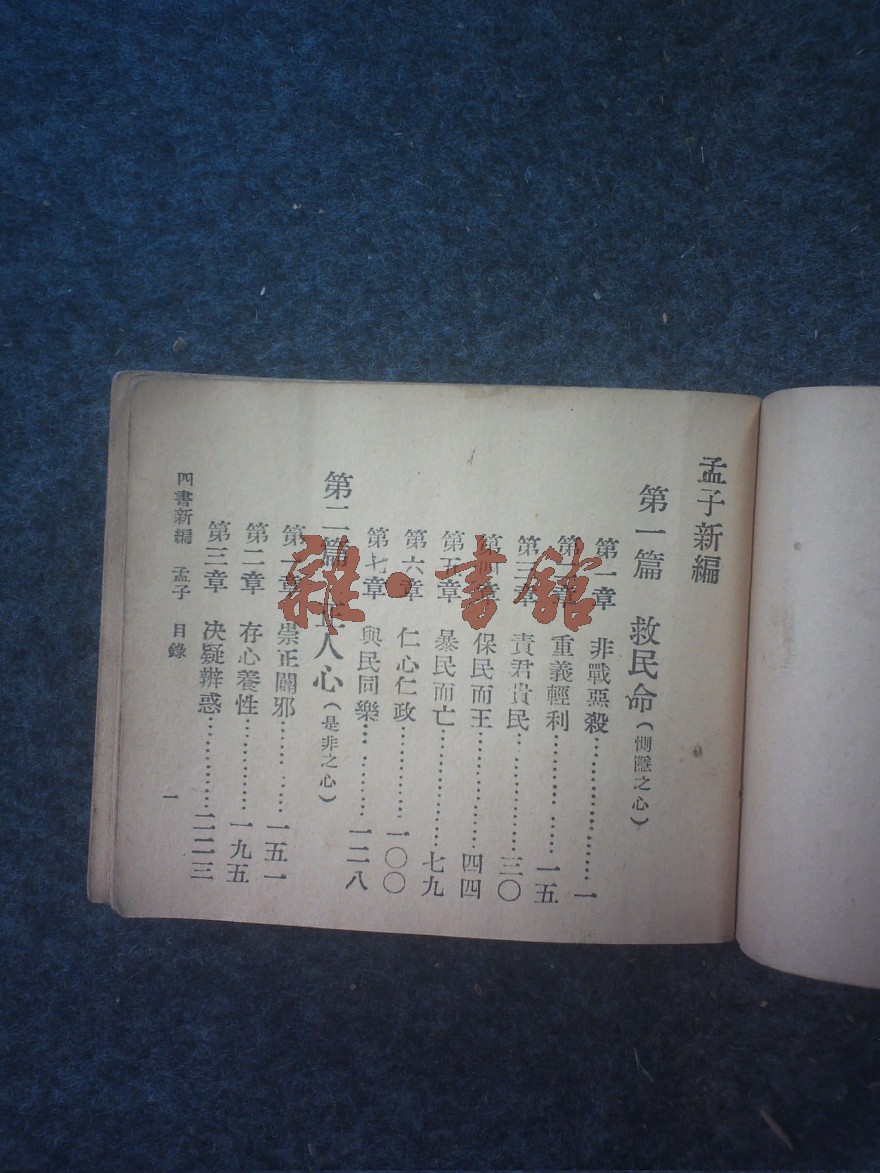 孟子新編
第一篇 救民命(惻隱之心)
第一章 非戰惡殺………………一
第二章 重義輕利………………一五
第三章 責君貴民………………三〇
第四章 保民而王………………四四
第五章 暴民而亡………………七九
第六章 仁心仁政………………一〇〇
第七章 與民同樂………………一二八
第二篇 正人心(是非之心)
第一章 崇正闢邪………………一五一
第二章 存心養性………………一九五
第三章 决疑辨惑………………二二三
四書新編 孟子 目錄
一
雜·書館